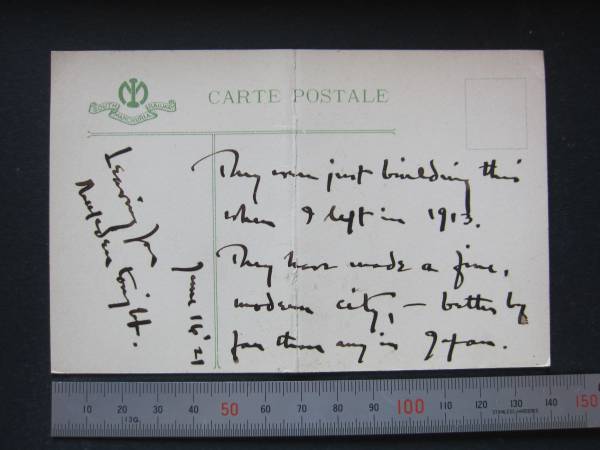 SOUTH MANCHURIA RAILWAY
CARTE POSTALE
They were just building this
when I left in 1913.
They have made a fine,
modern city, – better by
far than any in Japan.
Leaving for
Mukden tonight.
June 16 '21
10 20 30 40 50 60 70 80 90 100 110 120 130 140 150
13G
STAINLESS HARDENED